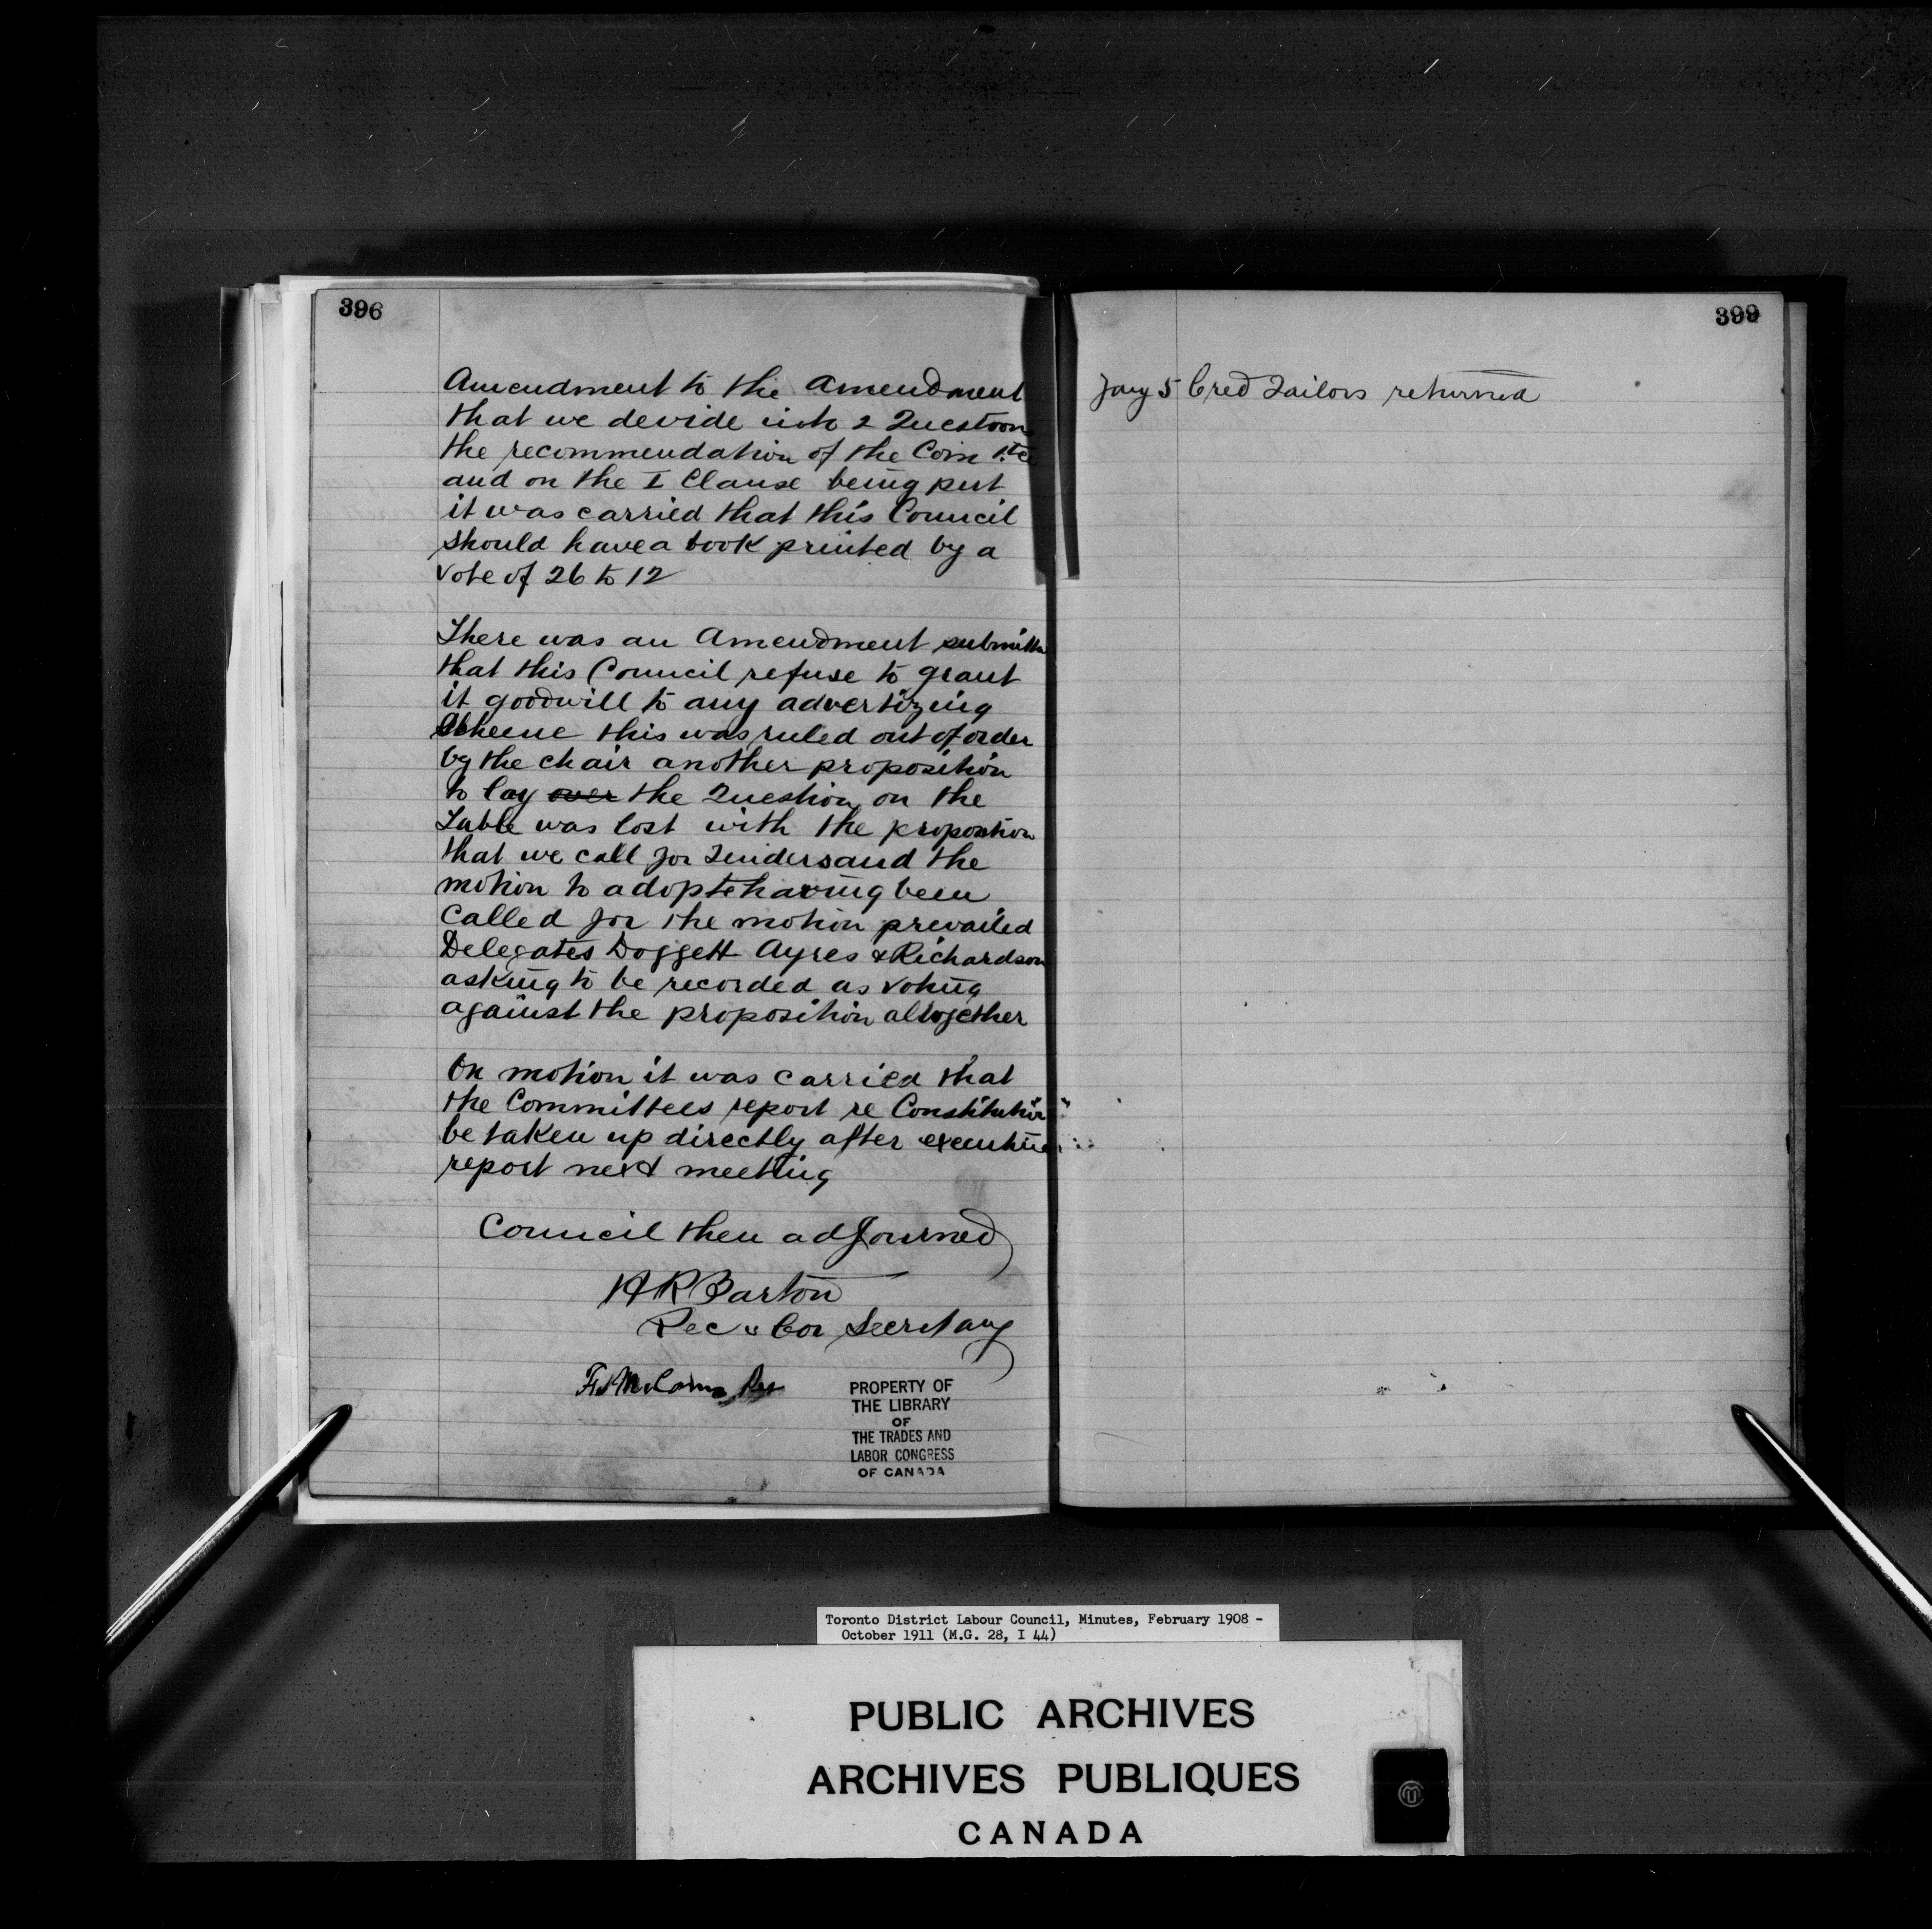 396
Amendment to the Amendment
that we devide into 2 Question
the recommendation of the Com ttee
and on the I Clause being put
it was carried that this Council
should have a book printed by a
vote of 26 to 12
There was an Amendment submitte
that this Council refuse to grant
it goodwill to any advertizing
Scheme this was ruled out of order
by the chair another proposition
to lay over the Question on the
Table was lost with the proposition
that we call for Tenders and the
motion to adopt having been
called for the motion prevailed
Delegates Doggett Ayres & Richardson
asking to be recorded as voting
against the proposition altogether
On motion it was carried that
the Committees report re Constitution
be taken up directly after executive
report next meeting
Council then adjourned
HR Barton
Rec & Cor Secretary
PROPERTY OF
THE LIBRARY
OF
THE TRADES AND
LABOR CONGRESS
OF CANADA
399
Jany 5 Cred Tailors returned
Toronto District Labour Council, Minutes, February 1908 -
October 1911 (M.G. 28, I 44)
PUBLIC ARCHIVES
ARCHIVES PUBLIQUES
CANADA